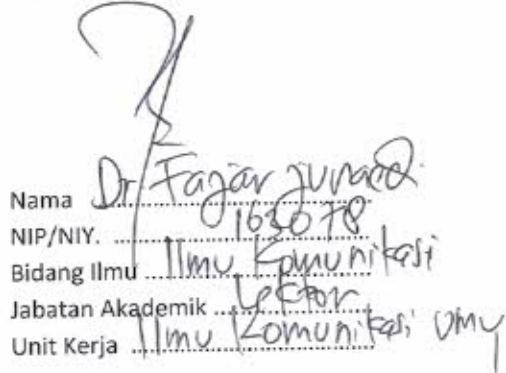 Nama Dr. Fajar Junaedi
NIP/NIY. 163078
Bidang Ilmu Ilmu Komunikasi
Jabatan Akademik Lektor
Unit Kerja Ilmu Komunikasi UMY